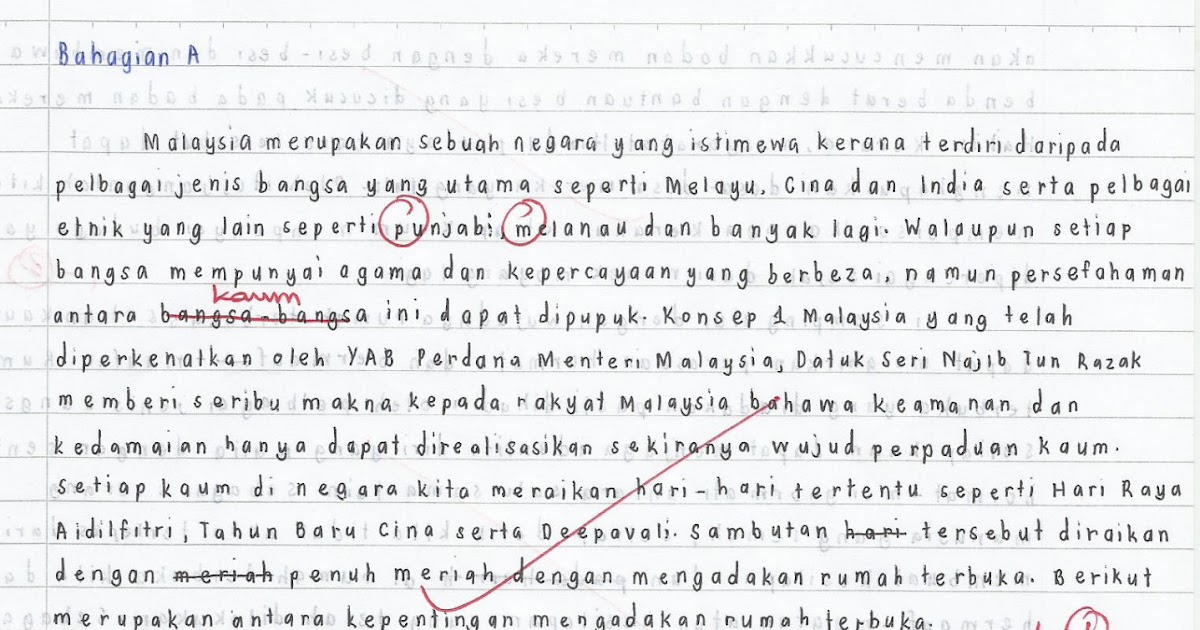 Bahagian A
Malaysia merupakan sebuah negara yang istimewa kerana terdiri daripada
pelbagai jenis bangsa yang utama seperti Melayu, Cina dan India serta pelbagai
etnik yang lain seperti punjabi, melanau dan banyak lagi. Walaupun setiap
bangsa mempunyai agama dan kepercayaan yang berbeza, namun persefahaman
kaum
antara bangsa-bangsa ini dapat dipupuk. Konsep 1 Malaysia yang telah
diperkenalkan oleh YAB Perdana Menteri Malaysia, Datuk Seri Najib Tun Razak
memberi seribu makna kepada rakyat Malaysia bahawa keamanan dan
kedamaian hanya dapat direalisasikan sekiranya wujud perpaduan kaum.
Setiap kaum di negara kita meraikan hari-hari tertentu seperti Hari Raya
Aidilfitri, Tahun Baru Cina serta Deepavali. Sambutan hari tersebut diraikan
dengan meriah penuh meriah dengan mengadakan rumah terbuka. Berikut
merupakan antara kepentingan mengadakan rumah terbuka.